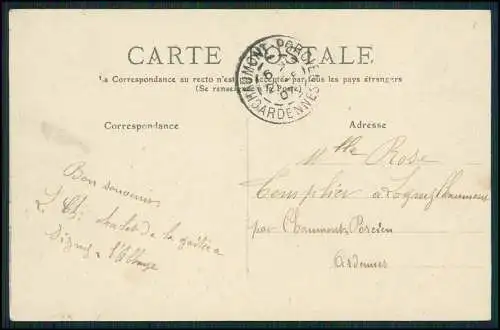 CARTE POSTALE
La Correspondance au recto n'est pas acceptée par tous les pays étrangers
(Se renseigner à la Poste)
CHAUMONT-PORCIEN
ARDENNES
Correspondance
Adresse
Mlle Rose
à
par Chaumont-Porcien
Ardennes
Bon souvenir
de la
Signy-l'Abbaye